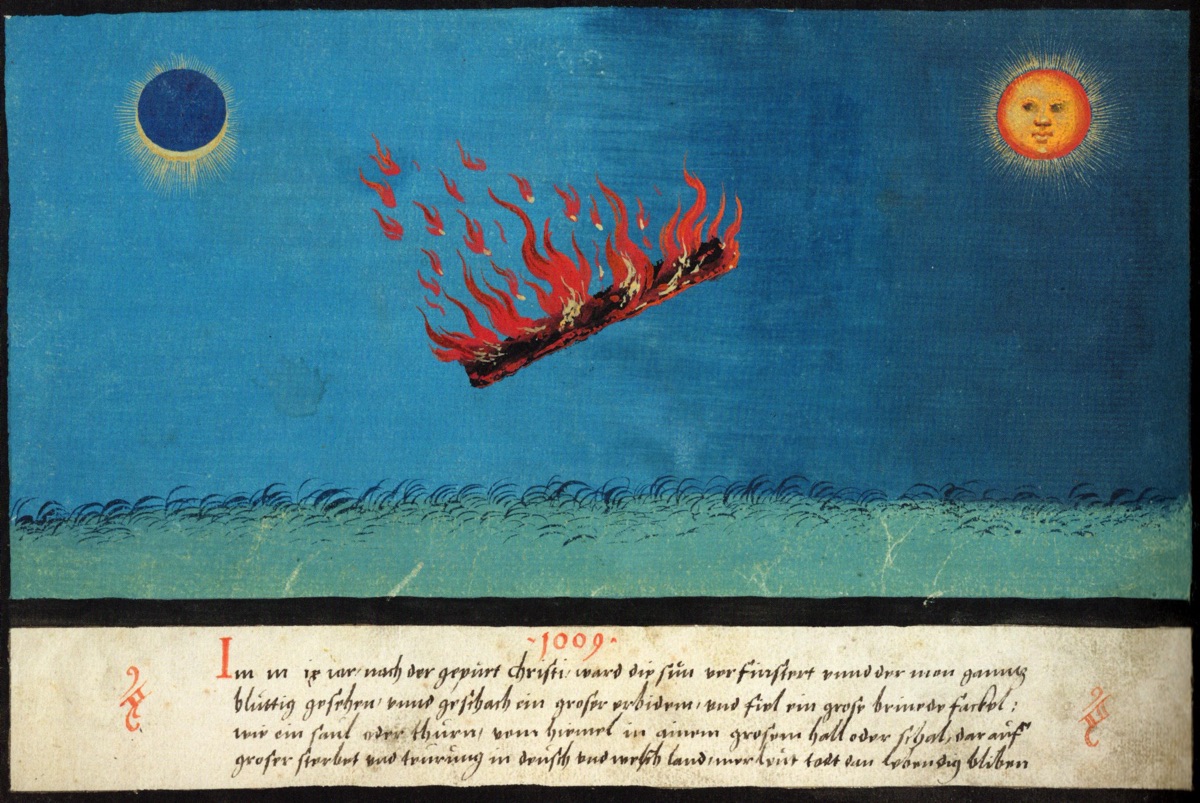 ·1009·
Im m ix iar, nach der gepurt christi, ward die sün verfinstert vnnd der mon gantz
blüttig gesehen, vnnd geschach ein groser erbidem, vnd fiel ein grose brinede fackel:
wie ein saül oder thürn, vom hiemel in ainem grosem hall oder schal, dar aüf
groser sterbet vnd teürüng in deüsch vnd welsch land, mer leüt todt dan lebendig bliben